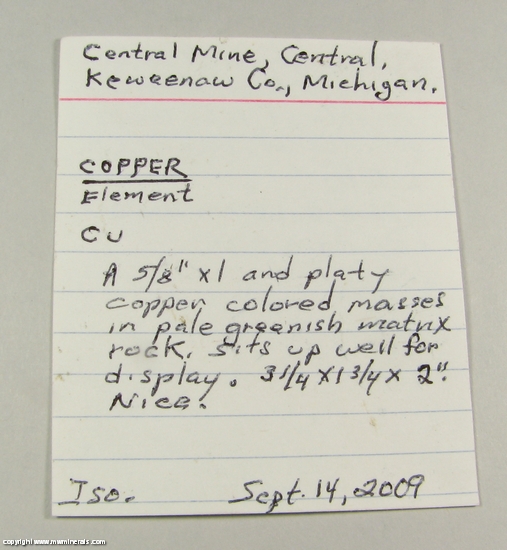 Central Mine, Central,
Keweenaw Co., Michigan.
COPPER
Element
CU
A 5/8" x1 and platy
copper colored masses
in pale greenish matrix
rock. Sits up well for
display. 3 1/4 x 1 3/4 x 2".
Nice.
Iso. Sept. 14, 2009
copyright www.mwminerals.com